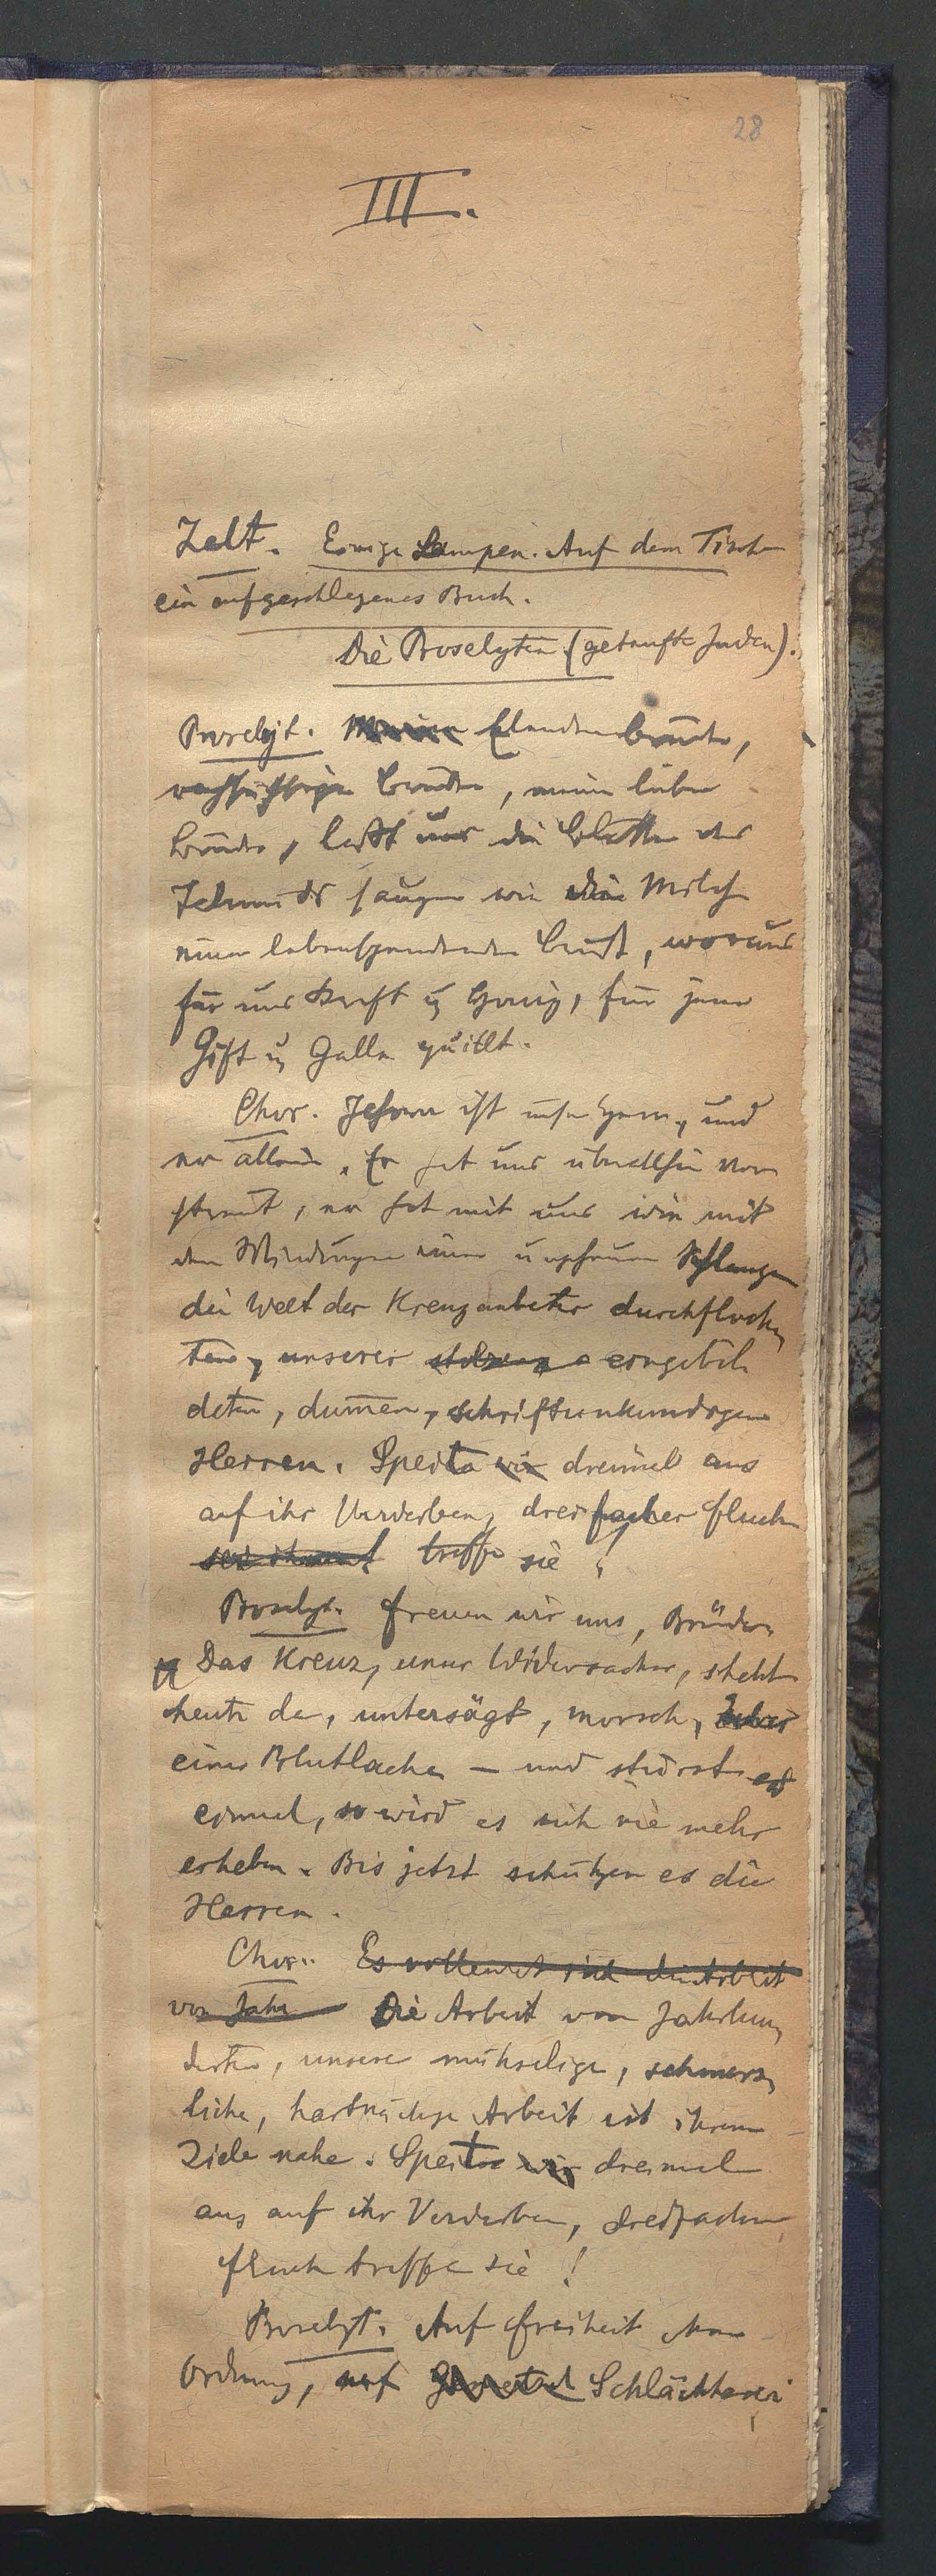 28
III.
Zelt. Einige Lampen. Auf dem Tische
ein aufgeschlagenes Buch.
Die Proselyten (getaufte Juden).
Proselyt. Meine Glaubensbrüder,
Brüder, meine lieben
Brüder, laßt uns die Blätter des
Talmuds saugen wie die Milch
einer lebenspendenden Brust, woraus
für uns Kraft u Honig, für jene
Gift u Galle quillt.
Chor. Jehova ist unser Herr, und
er allein. Er hat uns überallhin ver
streut, er hat mit uns wie mit
den Windungen einer ungeheuren Schlange
die Welt der Kreuzanbeter durchfloch
ten, unserer stolzen eingebil
deten, dum̄en, schriftunkundigen
Herren. Speit wir dreimal aus
auf ihr Verderben, dreifacher Fluch
sei ihnen treffe sie!
Proselyt. Freuen wir uns, Brüder
Das Kreuz, unser Widersacher, steht
heute da, untersägt, morsch, über
einer Blutlache – und stürzt es
einmal, so wird es sich nie mehr
erheben. Bis jetzt schützen es die
Herren.
Chor. Es vollendet sich die Arbeit
von Jahr Die Arbeit von Jahrhun
derten, unsere mühselige, schmerz
liche, hartnäckige Arbeit ist ihrem
Ziele nahe. Speit wir dreimal
aus auf ihr Verderben, dreifacher
Fluch treffe sie!
Proselyt. Auf Freiheit ohne
Ordnung, auf Schlächterei